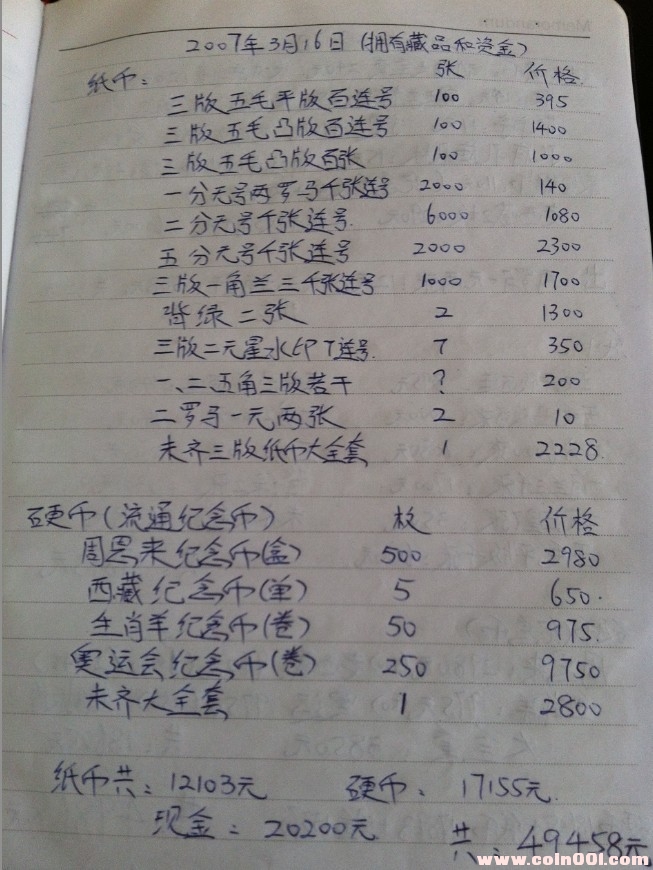 Memorandum
2007年3月16日(拥有藏品和资金)
纸币: 张 价格
三版五毛平版百连号 100 395
三版五毛凸版百连号 100 1400
三版五毛凸版百张 100 1000
一分无号两罗马千张连号 2000 140
二分无号千张连号. 6000 1080
五分无号千张连号 2000 2300
三版一角兰三千张连号 1000 1700
背绿二张 2 1300
三版二元星水印7连号. 7 350
一、二、五角三版若干 ? 200
二罗马一元两张 2 10
未齐三版纸币大全套 1 2228.
硬币(流通纪念币) 枚 价格
周恩来纪念币(盒) 500 2980
西藏纪念币(单) 5 650.
生肖羊纪念币(卷) 50 975.
奥运会纪念币(卷) 250 9750
未齐大全套 1 2800
纸币共: 12103元 硬币: 17155元.
现金: 20200元. 共: 49458元
www.coin001.com